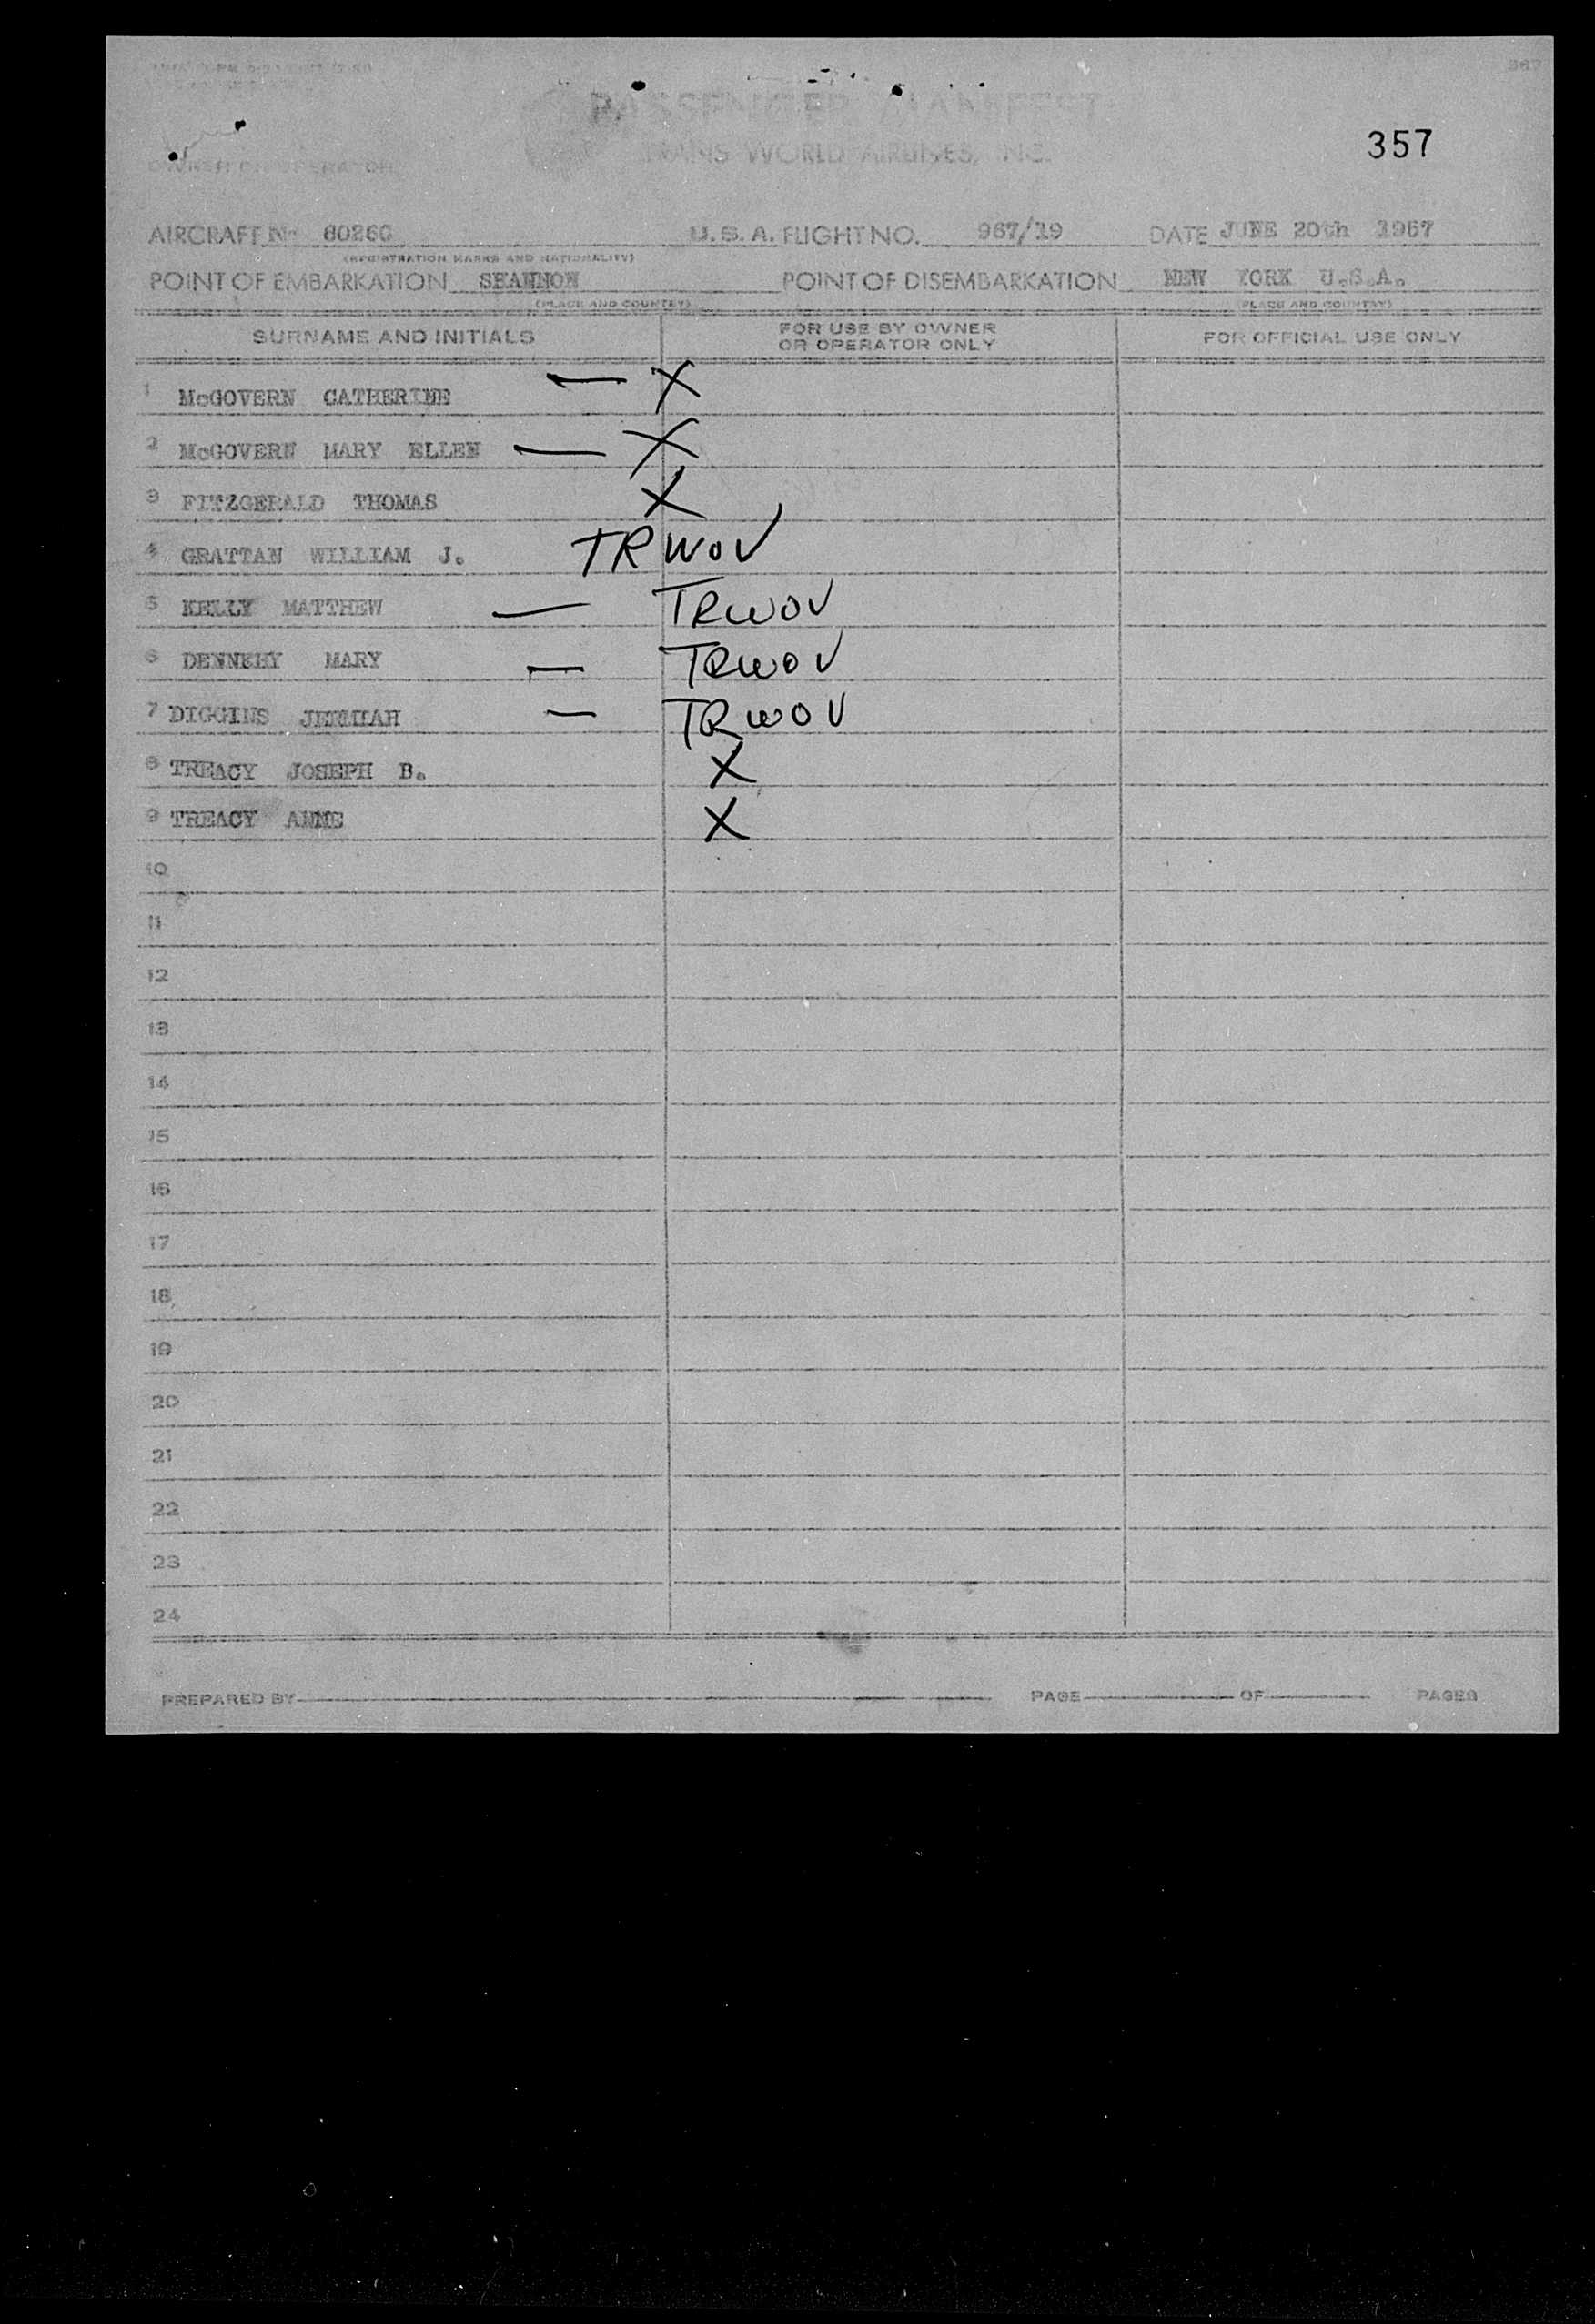 PASSENGER MANIFEST
TRANS WORLD AIRLINES, INC.
357
OWNER OR OPERATOR
AIRCRAFT No 6026C U.S.A. FLIGHT NO. 967/19 DATE JUNE 20th 1957
(REGISTRATION MARKS AND NATIONALITY)
POINT OF EMBARKATION SHANNON POINT OF DISEMBARKATION NEW YORK U.S.A.
(PLACE AND COUNTRY) (PLACE AND COUNTRY)
SURNAME AND INITIALS FOR USE BY OWNER OR OPERATOR ONLY FOR OFFICIAL USE ONLY
1 McGOVERN CATHERINE — X
2 McGOVERN MARY ELLEN — X
3 FITZGERALD THOMAS X
4 GRATTAN WILLIAM J. TRWOV
5 KELLY MATTHEW — TRWOV
6 DENNEHY MARY — TRWOV
7 DIGGINS JERMIAH — TRWOV
8 TREACY JOSEPH B. X
9 TREACY ANNE X
10
11
12
13
14
15
16
17
18
19
20
21
22
23
24
PREPARED BY PAGE OF PAGES